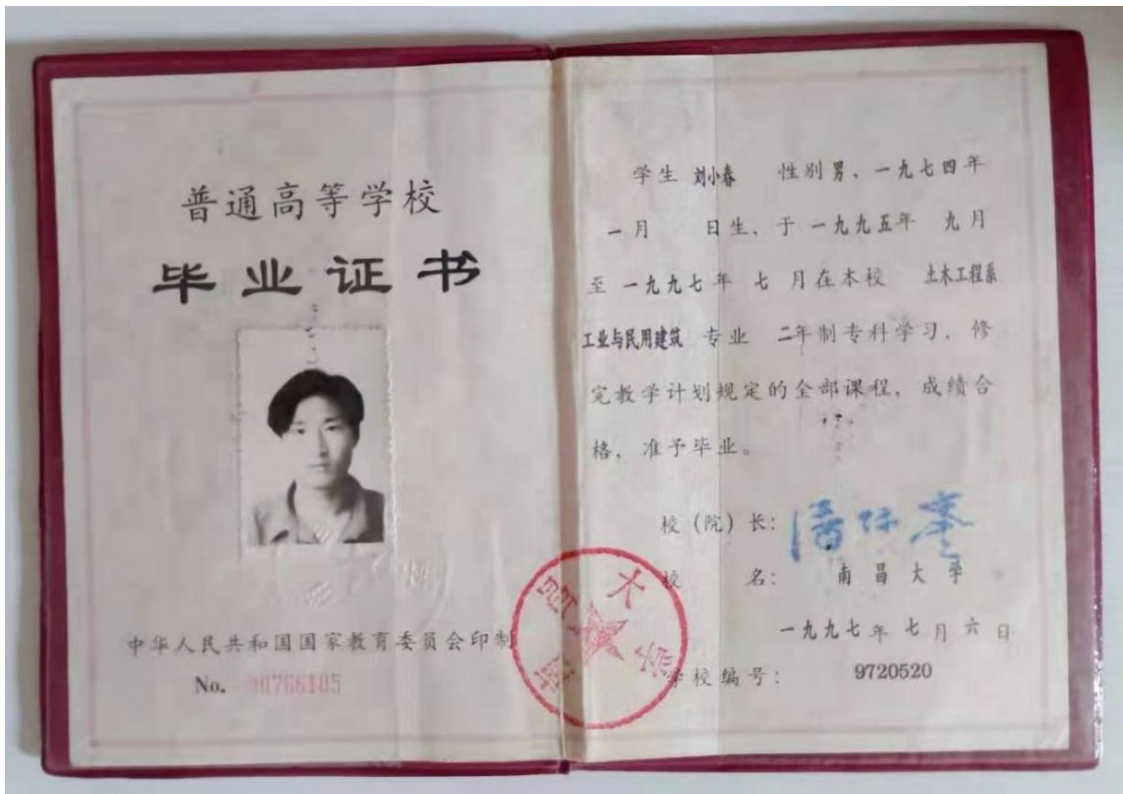 普通高等学校
毕业证书
中华人民共和国国家教育委员会印制
No. 90766105
学生 刘小春 性别男、一九七四年
一月 日生,于一九九五年 九月
至一九九七年 七月在本校 土木工程系
工业与民用建筑 专业 二年制专科学习,修
完教学计划规定的全部课程,成绩合
格,准予毕业。
校(院)长: 潘际銮
校 名: 南昌大学
一九九七年七月六日
学校编号: 9720520
南昌大学